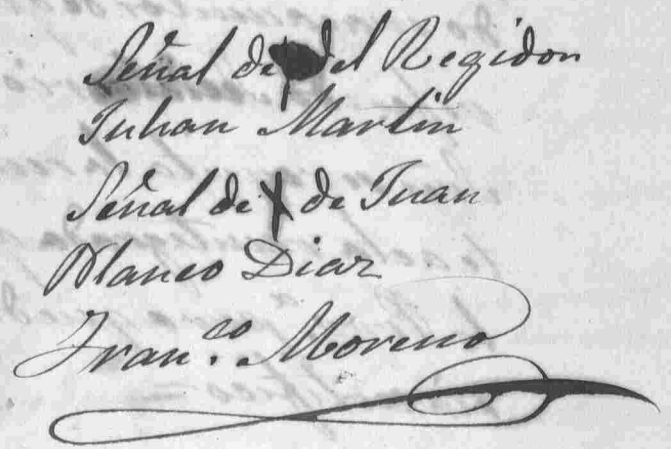 Señal de + del Regidor
Julian Martin
Señal de + de Juan
Blanco Diaz
Fran.co Moreno